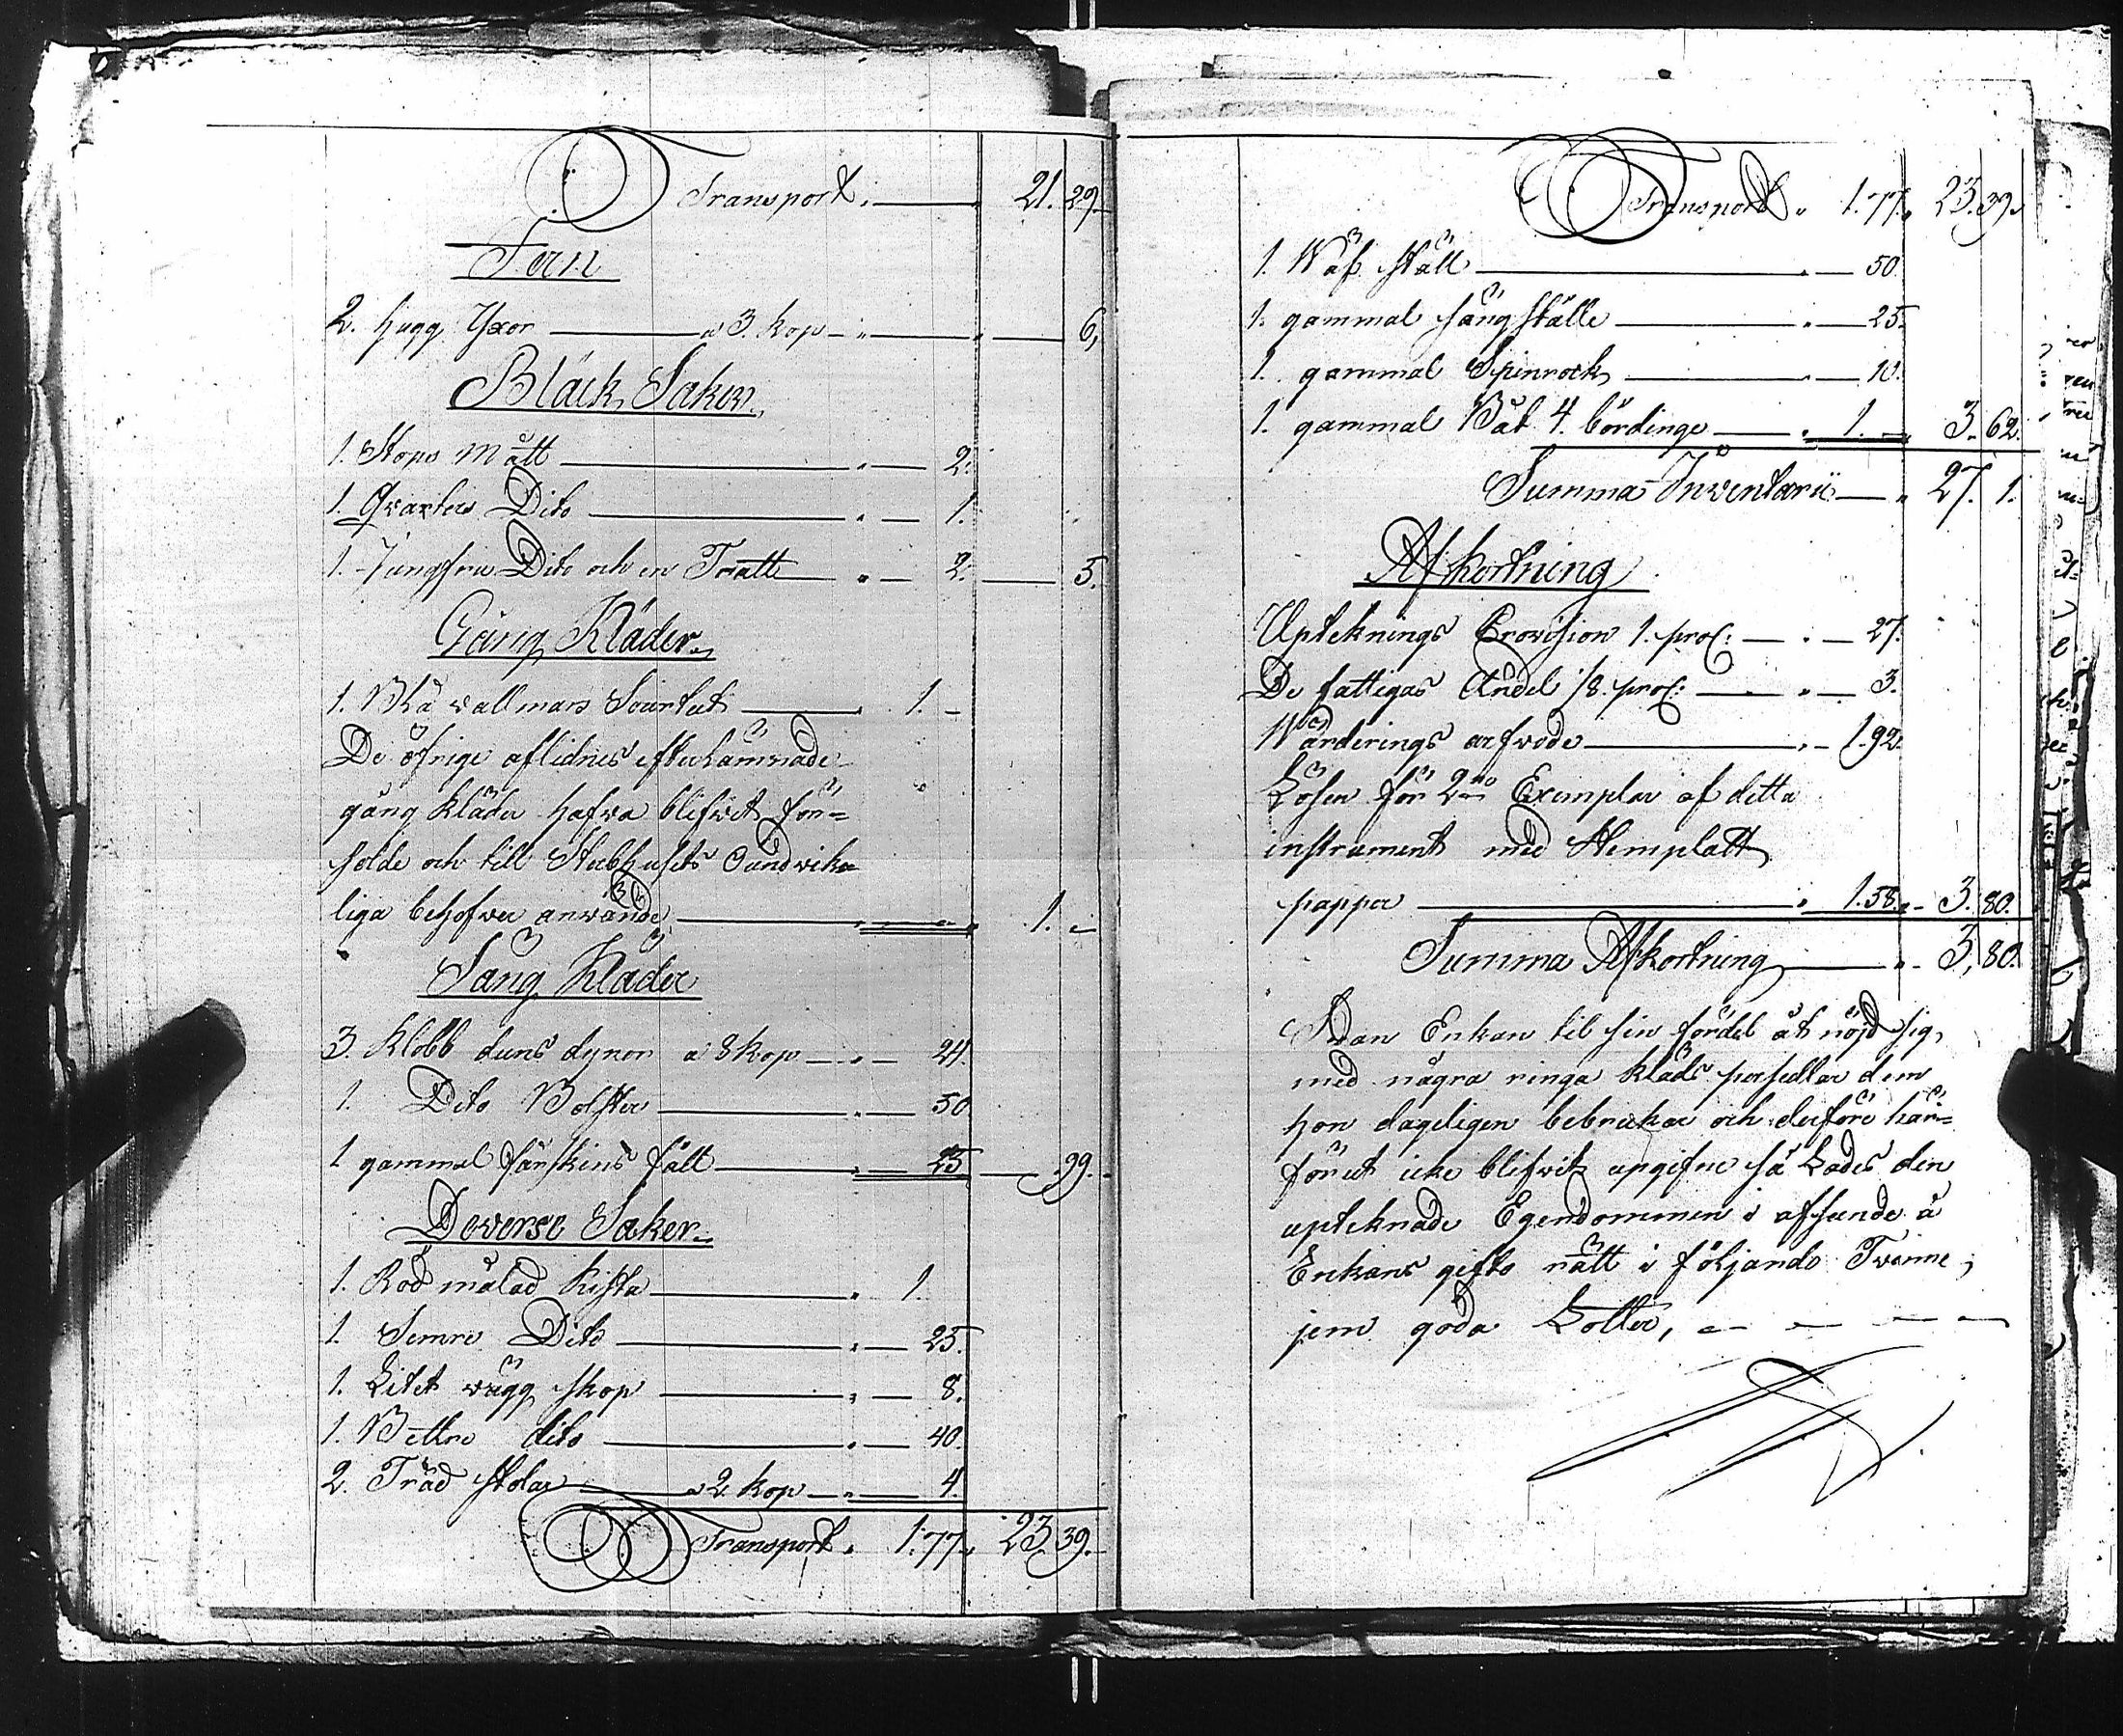 Transport. 21. 29.
Jern
2. hugg Yxor a 3. kop 6,
Bläck Saker.
1. Stops mått 2.
1. Qvarters Dito 1.
1. Jungfru Dito och en Tratt 2. 5.
Gång Kläder.
1. Blå vallmars Sourtut 1. -
De öfrige aflidnes efterlämnade
gång kläder hafva blifvit för=
sålde och till Sterbhusets Oundvike
liga behofver använde 1. -
Säng Kläder
3. Klobb duns dynor a 8 kop 24.
1. Dito Bolster 50
1 gammal fårskins fält 25 99.
Deverse Saker.
1. Röd målad kista 1.
1. Semre Dito 25.
1. Litet vägg skop 8.
1. Bettre dito 40.
2. Träd stolar a 2 kop 4.
Transport. 1.77. 23. 39.
Transport. 1.77. 23. 39.
1. Wäf ställ 50.
1. gammal säng ställe 25.
1. gammal Spinrock 10.
1. gammal Båt 4. bördinge 1. - 3. 62.
Summa Inventarii 27. 1.
Afkortning
Upteknings Provision 1. proC: 27.
De fattigas Andel 1/8. proC: 3.
Värderings arfvode 1.92.
Lösen för 2ne Exemplar af detta
instrument med Stemplatt
papper 1.58. 3. 80.
Summa Afkortning 3, 80.
Sedan Enkan til sin fördel åt nöjd sig
med några ringa kläds persedlar dem
hon dageligen bebrukar och derföre här=
förut icke blifvit upgifne så Lades den
upteknade Egendommen i afseende å
Enkans gifto rätt i följande Tvenne
jem goda Lotter,